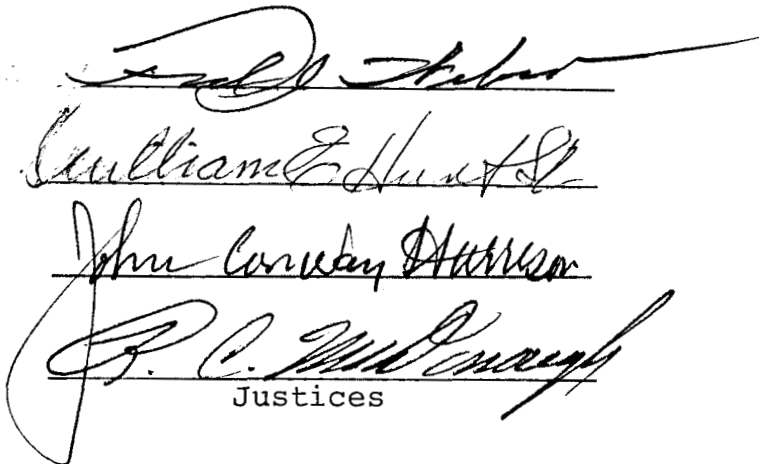 Fred J. Weber
William E Hunt Sr
John Conway Harrison
R. C. McDonough
Justices